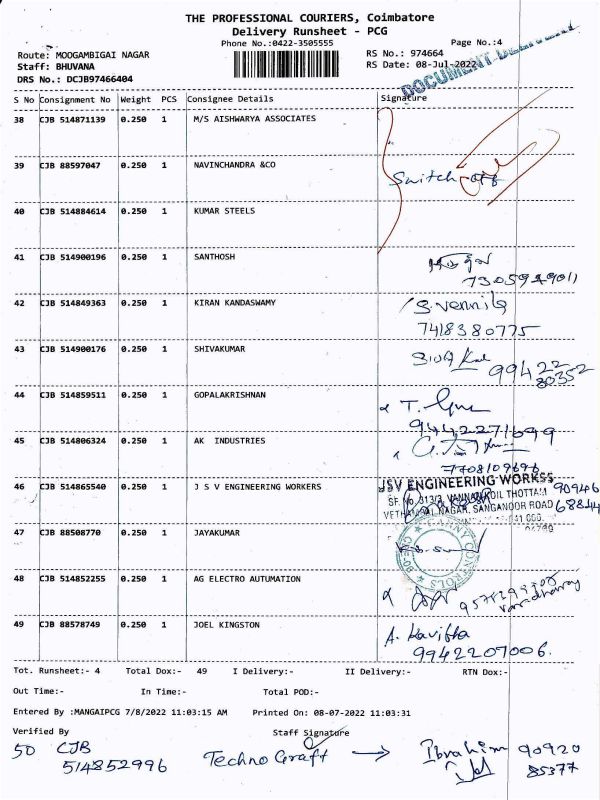 THE PROFESSIONAL COURIERS, Coimbatore
Delivery Runsheet - PCG
Phone No.:0422-3505555
Page No.:4
Route: MOOGAMBIGAI NAGAR
RS No.: 974664
Staff: BHUVANA
RS Date: 08-Jul-2022
DRS No.: DCJB97466404
DOCUMENT DELIVERY
S No Consignment No Weight PCS Consignee Details Signature
38 CJB 514871139 0.250 1 M/S AISHWARYA ASSOCIATES
39 CJB 88597047 0.250 1 NAVINCHANDRA &CO
Switch off
40 CJB 514884614 0.250 1 KUMAR STEELS
41 CJB 514900196 0.250 1 SANTHOSH
42 CJB 514849363 0.250 1 KIRAN KANDASWAMY S. Vennila
7418380775
43 CJB 514900176 0.250 1 SHIVAKUMAR
99422
80352
44 CJB 514859511 0.250 1 GOPALAKRISHNAN
9442271699
45 CJB 514806324 0.250 1 AK INDUSTRIES
7708109696
46 CJB 514865540 0.250 1 J S V ENGINEERING WORKERS
JSV ENGINEERING WORKSS 90946
SF. No. 313/3, VANNANKOIL THOTTAM
VETHAMBAL NAGAR, SANGANOOR ROAD
47 CJB 88508770 0.250 1 JAYAKUMAR
48 CJB 514852255 0.250 1 AG ELECTRO AUTUMATION
49 CJB 88578749 0.250 1 JOEL KINGSTON A. Kavitha
9942207006.
Tot. Runsheet:- 4 Total Dox:- 49 I Delivery:- II Delivery:- RTN Dox:-
Out Time:- In Time:- Total POD:-
Entered By :MANGAIPCG 7/8/2022 11:03:15 AM Printed On: 08-07-2022 11:03:31
Verified By Staff Signature
50 CJB Techno Graft → Ibrahim 90920
514852996 85377